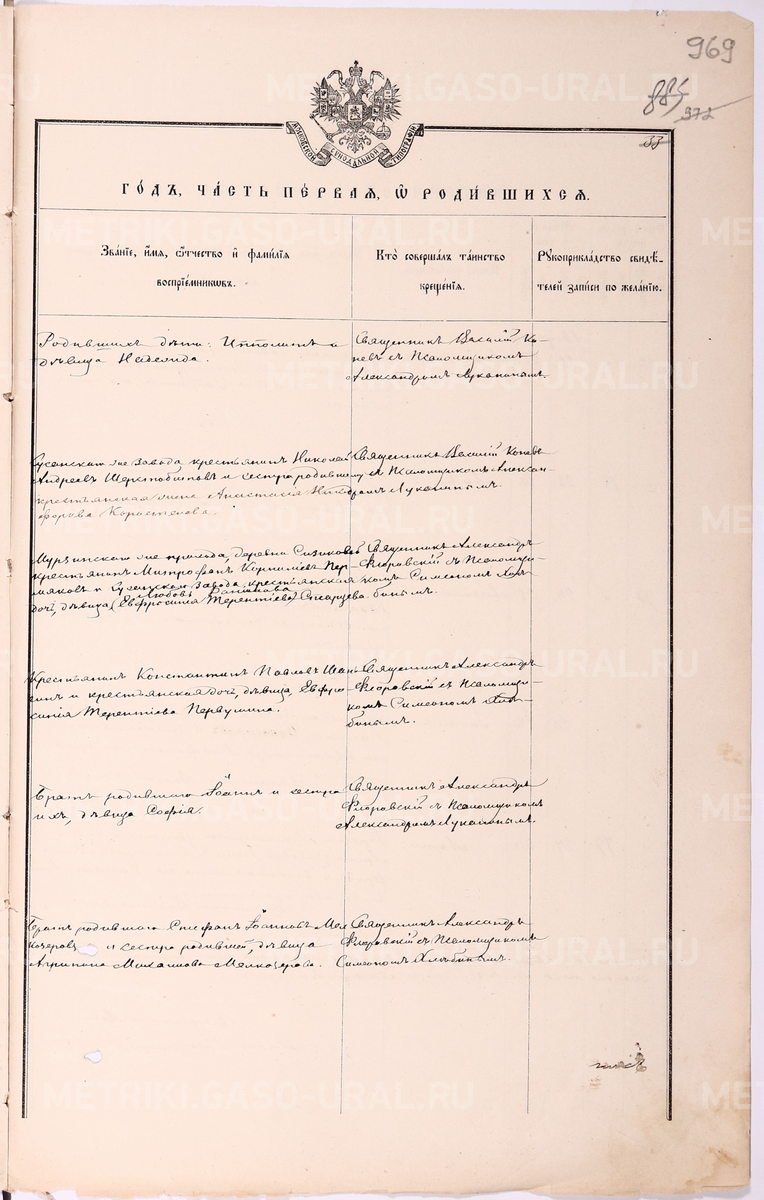 969
885
972
33
МОСКОВСКОЙ СѴНОДАЛЬНОЙ ТИПОГРАФІИ
ГО́ДЪ, ЧА́СТЬ ПЕ́РВАЯ, Ѽ РОДИ́ВШИХСѦ.
Зва́нїе, и́мя, ѻ҆́тчество и҆ фами́лїя
воспрїе́мникѡвъ.
Кто̀ соверша́лъ та́инство
креще́нїя.
Рꙋкоприкла́дство свидѣ́-
телей за́писи по жела́нїю.
Родившихъ дѣти: Ипполитъ и
дѣвица Надежда.
Священникъ Василій Ко-
невъ съ Псаломщикомъ
Александромъ Луканинымъ.
завода крестьянинъ Николай
Андреевъ и сестра родившему
крестьянская жена Анастасія Ники-
форова Коростелева.
Священникъ Василій Коневъ
съ Псаломщикомъ Алексан-
дромъ Луканинымъ.
Мурзинскаго же прихода, деревни
крестьянинъ Митрофанъ Корниліевъ Пер-
мяковъ и завода, крестьянская
Любовь
дочь, дѣвица (Евфросинія Терентіева)
Священникъ Александръ
Флоровскій съ Псаломщи-
комъ Симеономъ Хлѣ-
бинымъ.
Крестьянинъ Константинъ Павловъ
и крестьянская дочь, дѣвица Евфро-
синія Терентіева Первушина.
Священникъ Александръ
Флоровскій съ Псаломщи-
комъ Симеономъ Хлѣ-
бинымъ.
Братъ родившаго Іоаннъ и сестра
ихъ, дѣвица Софія.
Священникъ Александръ
Флоровскій съ Псаломщикомъ
Александромъ Луканинымъ.
Братъ родившаго Стефанъ Іоанновъ Мел-
козеровъ и сестра родившей, дѣвица
Агрипина Михаилова Мелкозерова.
Священникъ Александръ
Флоровскій съ Псаломщикомъ
Симеономъ Хлѣбинымъ.
METRIKI.GASO-URAL.RU